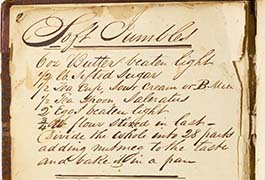 Soft Jumbles
6 oz Butter beaten light
1/2 lb Sifted Sugar
1/2 Tea Cup, Sour Cream or B. Milk
1/2 Tea Spoon Saleratus
2 Eggs beaten light
3/4 lb flour stired in last —
(Divide the whole into 28 parts
adding nutmeg to the taste
and bake in a pan